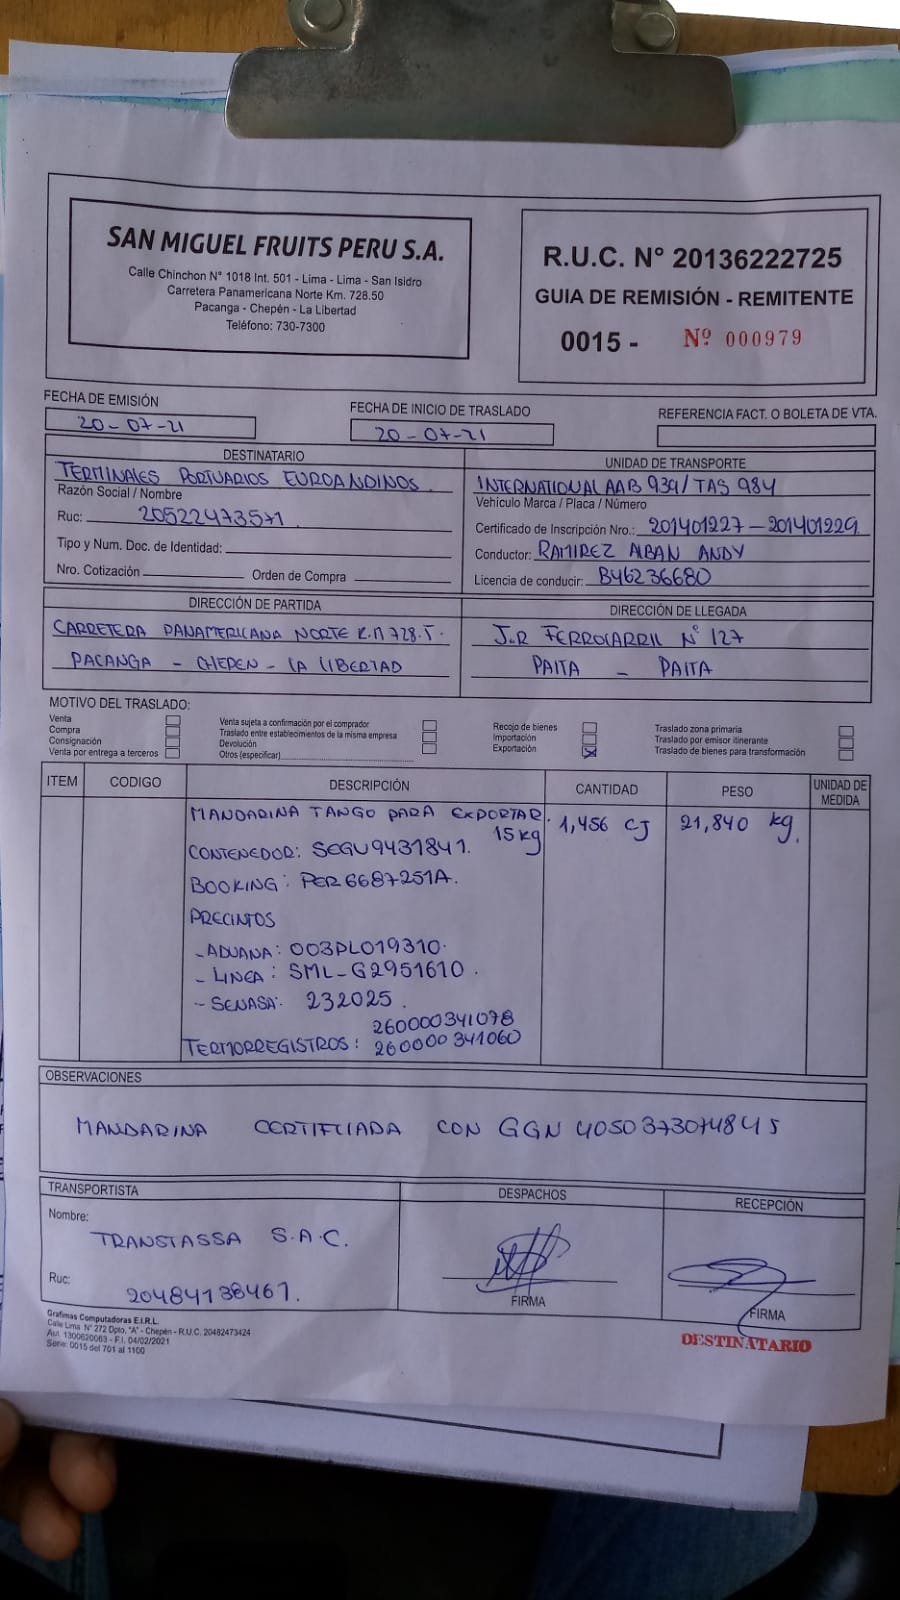 SAN MIGUEL FRUITS PERU S.A.
Calle Chinchon N° 1018 Int. 501 - Lima - Lima - San Isidro
Carretera Panamericana Norte Km. 728.50
Pacanga - Chepén - La Libertad
Teléfono: 730-7300
R.U.C. N° 20136222725
GUIA DE REMISIÓN - REMITENTE
0015 - Nº 000979
FECHA DE EMISIÓN
20-07-21
FECHA DE INICIO DE TRASLADO
20-07-21
REFERENCIA FACT. O BOLETA DE VTA.
DESTINATARIO
TERMINALES PORTUARIOS EUROANDINOS
Razón Social / Nombre
Ruc: 20522473571
Tipo y Num. Doc. de Identidad:
Nro. Cotización Orden de Compra
UNIDAD DE TRANSPORTE
INTERNATIONAL AAB 939/ TAS 984
Vehículo Marca / Placa / Número
Certificado de Inscripción Nro.: 201401227-201401229
Conductor: RAMIREZ ALBAN ANDY
Licencia de conducir: B46236680
DIRECCIÓN DE PARTIDA
CARRETERA PANAMERICANA NORTE K.M 728.5.
PACANGA - CHEPEN - LA LIBERTAD
DIRECCIÓN DE LLEGADA
J.R FERROCARRIL N° 127
PAITA - PAITA
MOTIVO DEL TRASLADO:
Venta
Compra
Consignación
Venta por entrega a terceros
Venta sujeta a confirmación por el comprador
Traslado entre establecimientos de la misma empresa
Devolución
Otros (especificar)
Recojo de bienes
Importación
Exportación X
Traslado zona primaria
Traslado por emisor itinerante
Traslado de bienes para transformación
ITEM CODIGO DESCRIPCIÓN CANTIDAD PESO UNIDAD DE MEDIDA
MANDARINA TANGO PARA EXPORTAR. 1,456 CJ 21,840 kg.
15 kg
CONTENEDOR: SEGU9431841.
BOOKING: PER6687251A.
PRECINTOS
- ADUANA: 003PL019310.
- LINEA: SML-G2951610.
- SENASA: 232025.
260000341078
TERMORREGISTROS: 260000341060
OBSERVACIONES
MANDARINA CERTIFICIADA CON GGN 4050373074845
TRANSPORTISTA
Nombre:
TRANSTASSA S.A.C.
Ruc:
20484138461.
DESPACHOS
FIRMA
RECEPCIÓN
FIRMA
Grafimas Computadoras E.I.R.L.
Calle Lima N° 272 Dpto. "A" - Chepén - R.U.C. 20482473424
Aut. 1300620063 - F.I. 04/02/2021
Serie: 0015 del 701 al 1100
DESTINATARIO